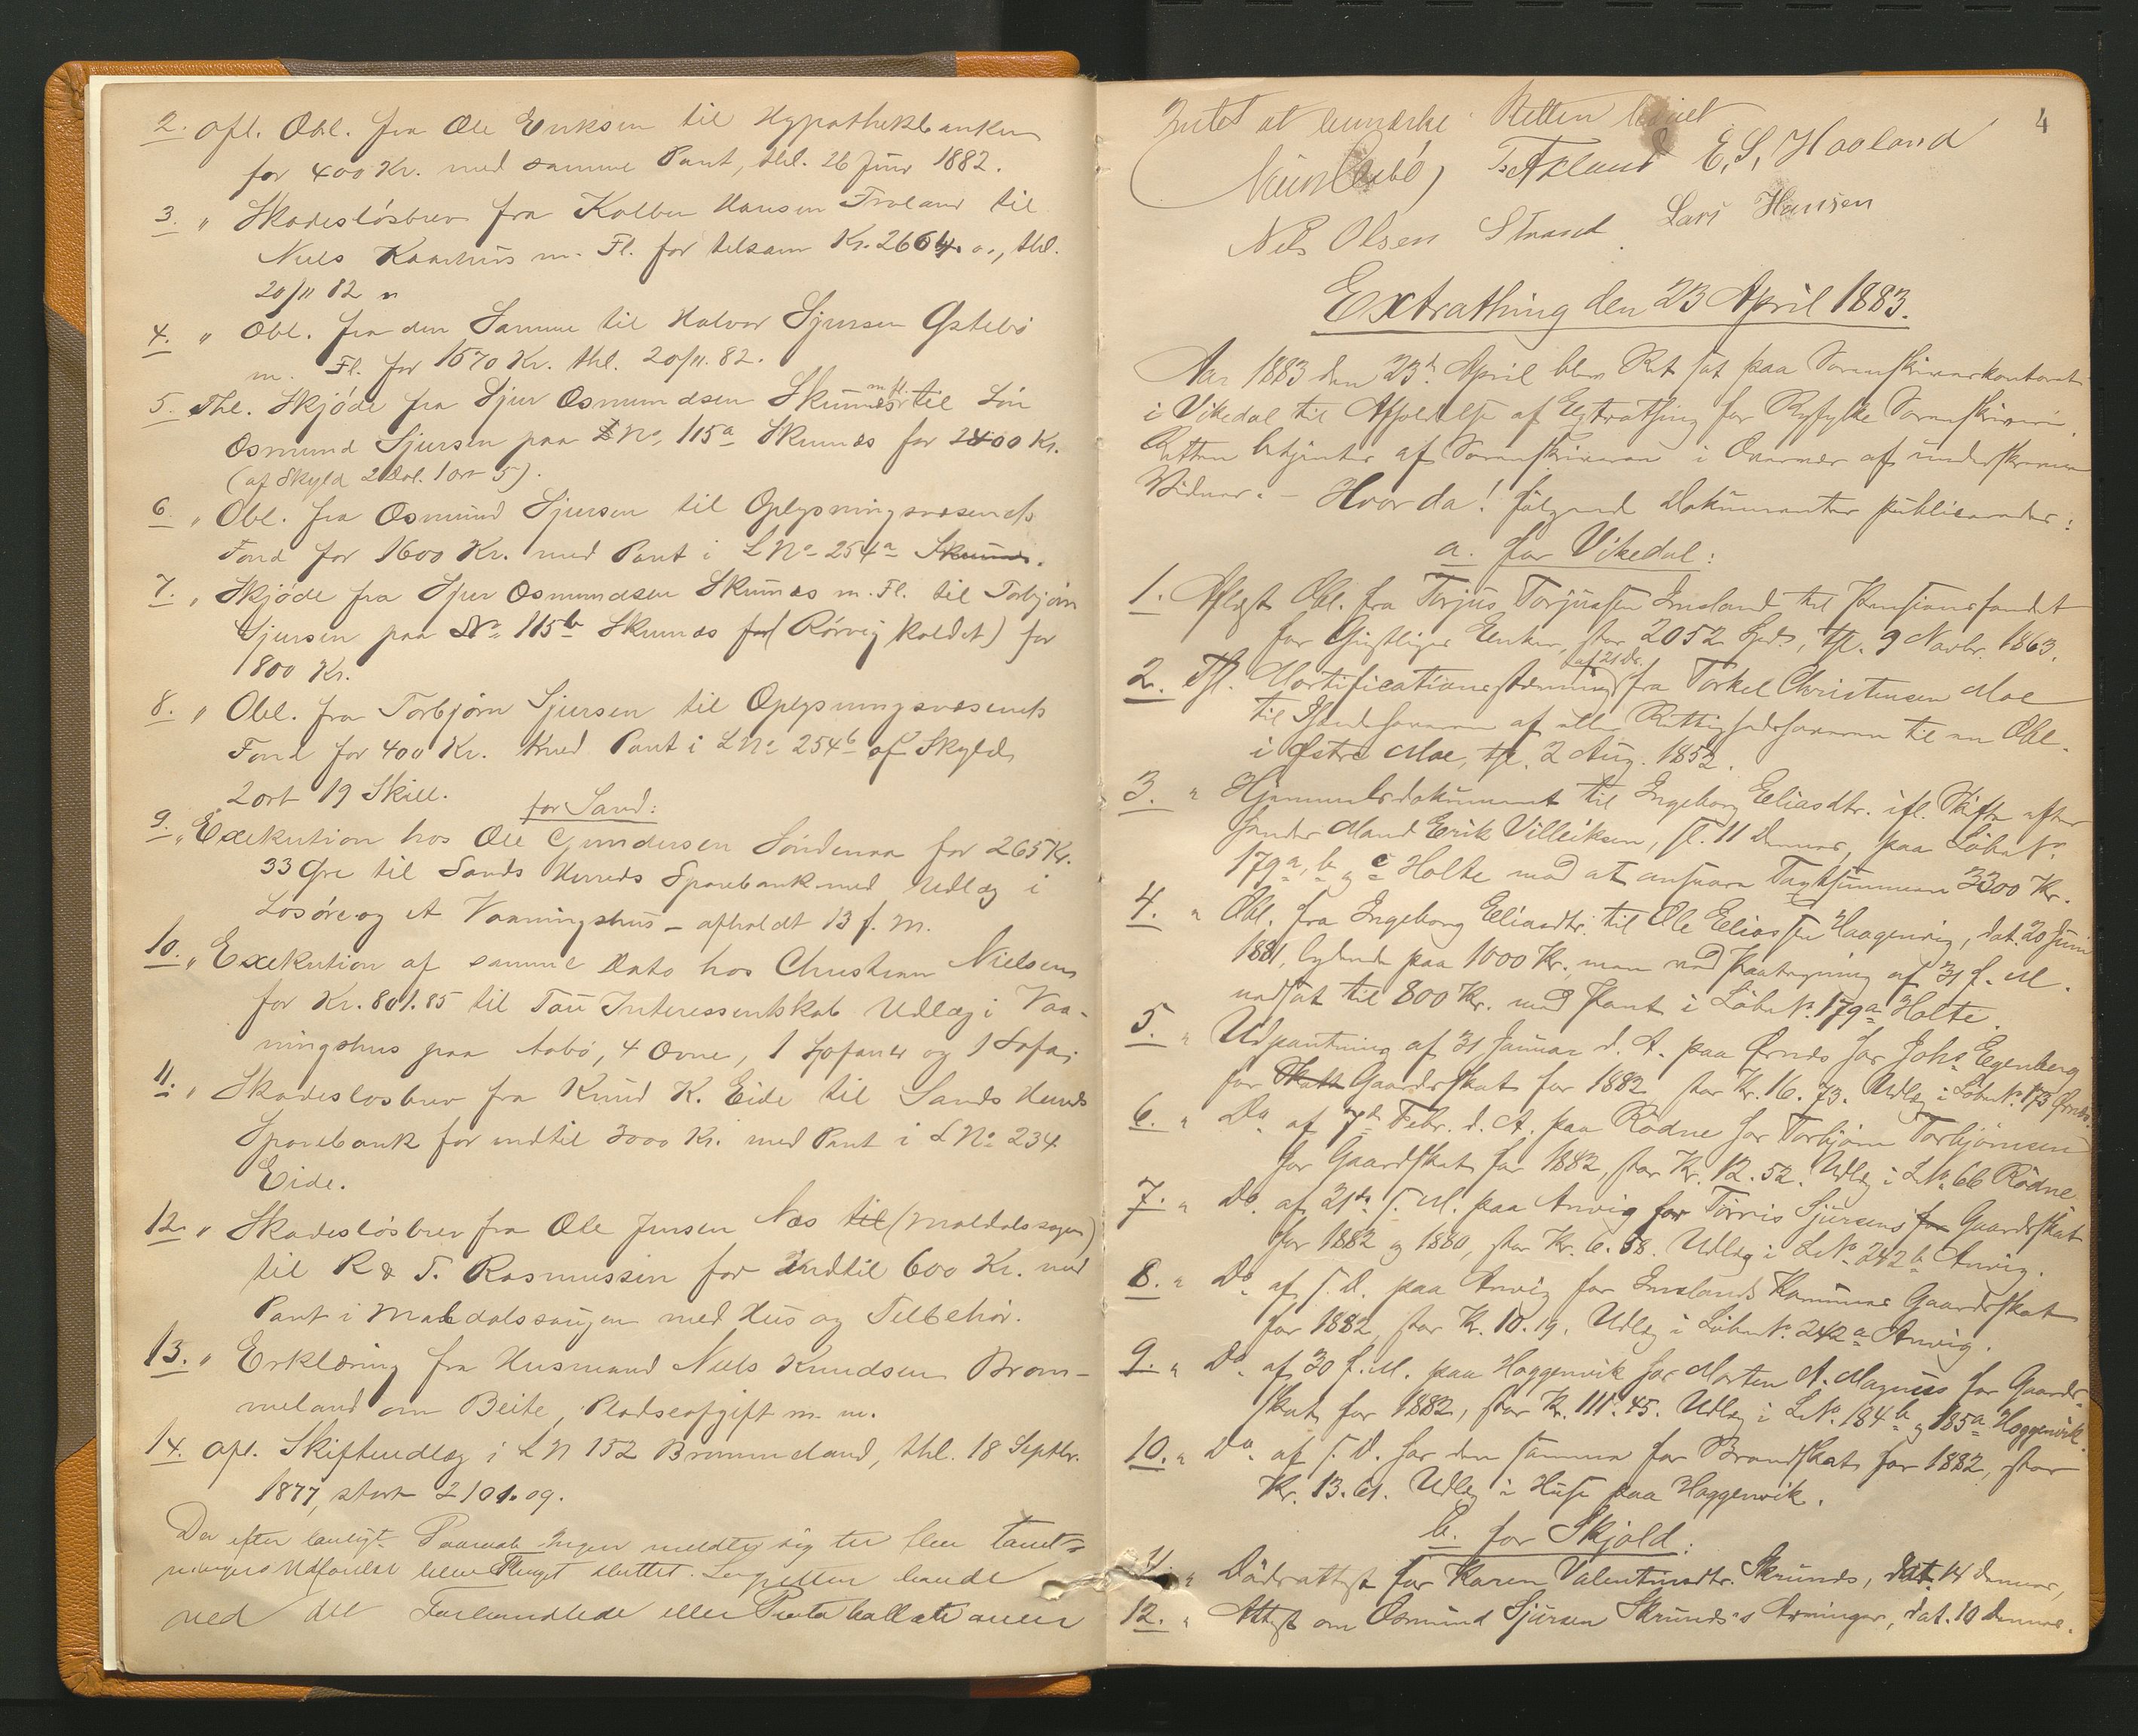 2. Afl. Obl. fra Ole Eriksen til Hypothekbanken
for 400 Kr. med samme Pant, thl. 26 Juni 1882.
3. " Skadesløsbrev fra Kolben Hansen Froland til
Niels Kaarhus m. Fl. for tilsam Kr. 2664. o., thl.
20/11 82 "
4. " Obl. fra den Samme til Halvor Sjursen Østebø
m. Fl. for 1570 Kr. thl. 20/11. 82.
5. Thl. Skjöde fra Sjur Osmundsen Skunæs m. fl. til Sön
Osmund Sjursen paa LNo. 115a Skunæs for 2400 Kr.
(af Skyld 2 Dal. 1 ort 5).
6. " Obl. fra Osmund Sjursen til Oplysningsvæsenets
Fond for 1600 Kr. med Pant i L No 254a Skunæs.
7. " Skjöde fra Sjur Osmundsen Skunæs m. Fl. til Torbjörn
Sjursen paa No 115b Skunæs (Rörvig kaldet) for
1800 Kr.
8. " Obl. fra Torbjörn Sjursen til Oplysningsvæsenets
Fond for 400 Kr. med Pant i L No 254b af Skyld
2 ort 19 Skill.
for Sand:
9. " Exekution hos Ole Gundersen Söndenaa for 265 Kr.
33 Øre til Sands Herreds Sparebank med Udlæg i
Lösöre og et Vaaningshus – afholdt 13 f. M.
10. " Exekution af samme Dato hos Christian Nielsen
for Kr. 801.85 til Tau Interessentskab Udlæg i Vaa-
ningshus paa Aabö, 4 Ovne, 1 og 1 Sofa.
11. " Skadeslosbrev fra Knud K. Eide til Sands Herreds
Sparebank for indtil 3000 Kr. med Pant i L No 234
Eide.
12. " Skadeslösbrev fra Ole Jensen Næs til (Maldalssagen)
til R & T. Rasmussen for Indtil 600 Kr. med
Pant i Maldalssaugen med Hus og Tilbehör.
13. " Erklæring fra Husmand Niels Knudsen Brom-
meland om Beite, Pladseafgift m. m.
14. Afl. Skifteudlæg i L N 152 Brommeland, thl. 18 Septbr.
1877, stort 2101.09.
Da efter lovligt Paaraab Ingen meldte sig til flere
Udførelse blev Thinget sluttet. Lagretten havde
ved det Forhandlede eller
4
Intet at bemærke. Retten hævet.
T. Axland E. S. Haaland
Nils Olsen Strand. Lars Hansen
Extrathing den 23 April 1883.
Aar 1883 den 23de April blev Ret sat paa Sorenskriverkontoret
i Vikedal til Afholdelse af Extrathing for Ryfylke Sorenskriveri.
Retten betjentes af Sorenskriveren i Overvær af underskrevne
Vidner. – Hvor da! følgende Dokumenter publiceredes:
a. for Vikedal:
1. Aflæst Obl. fra Torjus Torjussen Imsland til Pensionsfondet
for Geistliges Enker, stor 2052 Spd., thl. 9 Novbr. 1863.
2. Thl. Mortificationsstævning af 21 Ds. fra Torkel Christensen Moe
til Ihændehaveren af eller Rettighedshaveren til en Obl.
i Østre Moe, thl. 2 Aug. 1852.
3. " Hjemmelsdokument til Ingeborg Eliasdtr. ifl. Skifte efter
hendes Mand Eerik Villeiksen, sl. 11 Dennes, paa Löbe No.
179a, b og c Holte mod at ansvare Taxtsummen 3300 Kr.
4. " Obl. fra Ingeborg Eliasdtr. til Ole Eliassen Haagenvig, dat. 20 Juni
1881, lydende paa 1000 Kr., men ved Paategning af 31 f. M.
nedsat til 800 Kr. med Pant i Löbe No. 179a Holte.
5. " Udpantning af 31 Januar d. A. paa Ørnæs hos Johs Egenberg
for Skatt Gaardsskat for 1882, stor Kr. 16.73. Udlæg i Löbe No. 173 Ørnæs.
6. " Do. af 7de Febr. d. A. paa Rödne hos Torbjörn Torbjörnsen
for Gaardskat for 1882, stor Kr. 12.52. Udlæg i L No. 66 Rödne
7. " Do. af 21de s. M. paa Anvig for Törris Sjursens for Gaardsskat
for 1882 og 1880, stor Kr. 6.58. Udlæg i L No. 242b Anvig.
8. " Do. af s. D. paa Anvig for Imslands Kommunes Gaardsskat
for 1882, stor Kr. 10.19. Udlæg i Löbe No. 242a Anvig.
9. " Do. af 30 f. M. paa Haggenvik hos Morten A. Magnus for Gaards-
skat for 1882, stor Kr. 111.45. Udlæg i L No. 184b og 185a Haggenvik.
10. " Do. af s. D. hos den samme for Brandskat for 1882, stor
Kr. 13.61. Udlæg i Huse paa Haggenvik.
b. for Skjold:
11. " Dödsattest for Karen Valentinsdtr. Skrunæs, dat. 14 Dennes,
12. " Attest om Osmund Sjursen Skrunæs's Arvinger, dat. 10 Dennes.